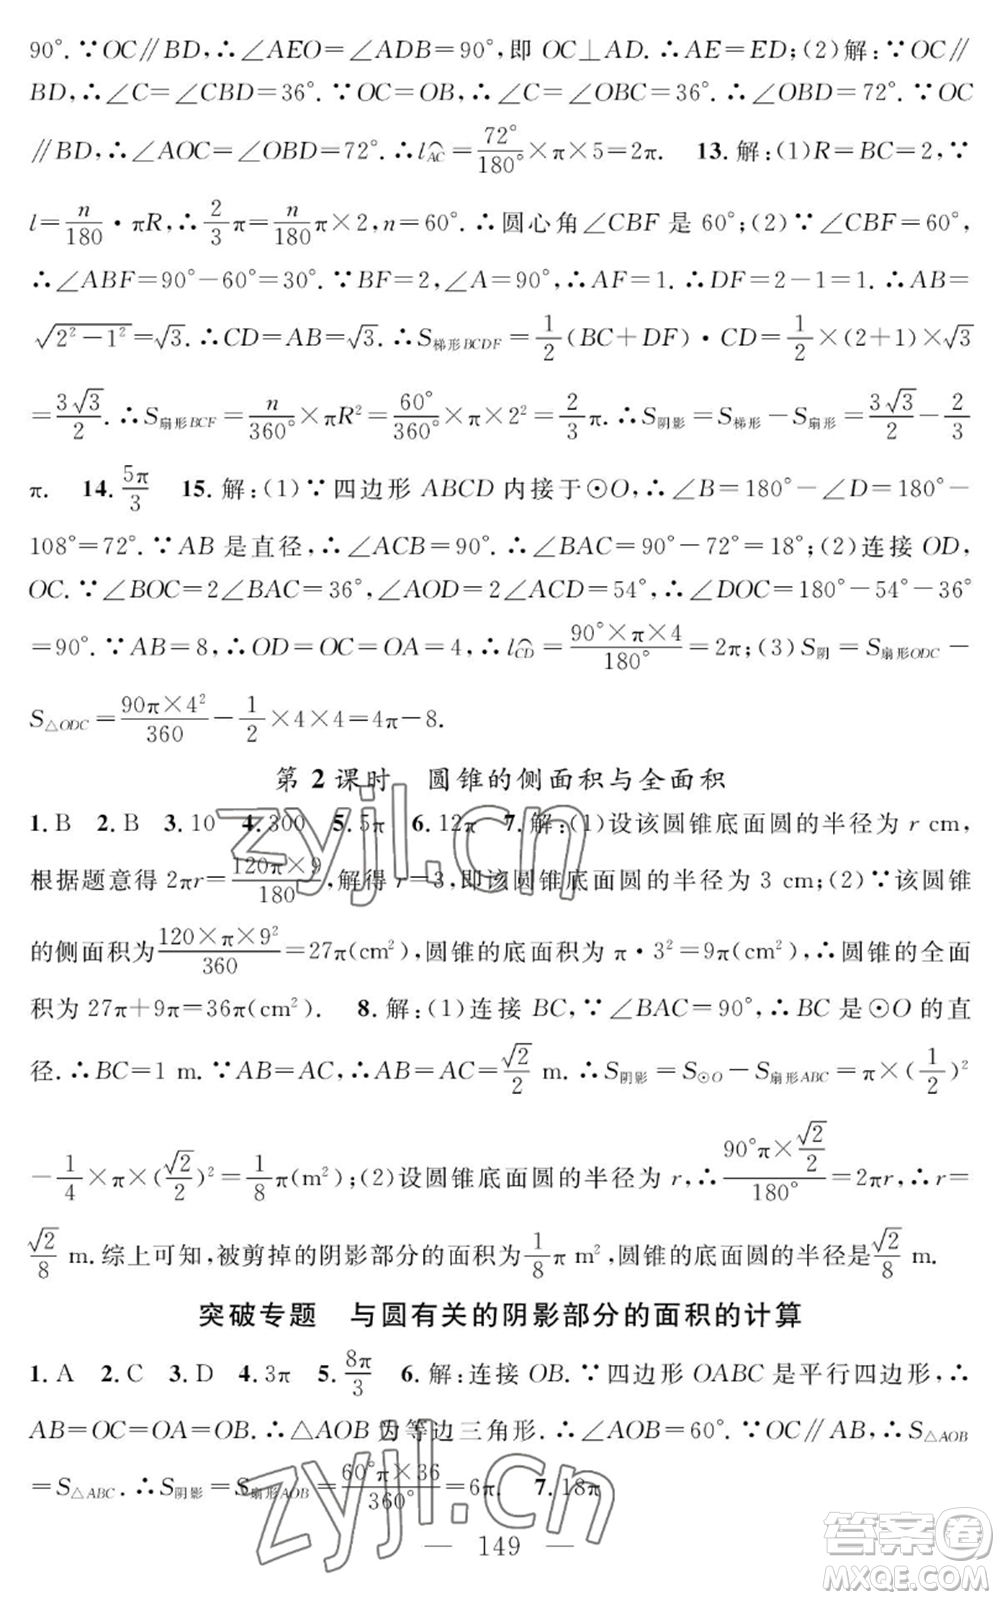 90°.∵OC∥BD,∴∠AEO=∠ADB=90°,即 OC⊥AD.∴AE=ED;(2)解:∵OC∥
BD,∴∠C=∠CBD=36°.∵OC=OB,∴∠C=∠OBC=36°.∴∠OBD=72°.∵OC
∥BD,∴∠AOC=∠OBD=72°.∴l⌒AC=72°/180°×π×5=2π. 13.解:(1)R=BC=2,∵
l=n/180·πR,∴2/3π=n/180π×2,n=60°.∴圆心角∠CBF 是 60°;(2)∵∠CBF=60°,
∴∠ABF=90°-60°=30°.∵BF=2,∠A=90°,∴AF=1.∴DF=2-1=1.∴AB=
√(2²-1²)=√3.∴CD=AB=√3.∴S梯形BCDF=1/2(BC+DF)·CD=1/2×(2+1)×√3
=3√3/2.∴S扇形BCF=n/360°×πR²=60°/360°×π×2²=2/3π.∴S阴影=S梯形-S扇形=3√3/2-2/3
π. 14.5π/3 15.解:(1)∵四边形 ABCD 内接于⊙O,∴∠B=180°-∠D=180°-
108°=72°.∵AB 是直径,∴∠ACB=90°.∴∠BAC=90°-72°=18°;(2)连接 OD,
OC.∵∠BOC=2∠BAC=36°,∠AOD=2∠ACD=54°,∴∠DOC=180°-54°-36°
=90°.∵AB=8,∴OD=OC=OA=4,∴l⌒CD=90°×π×4/180°=2π;(3)S阴=S扇形ODC-
S△ODC=90π×4²/360-1/2×4×4=4π-8.
第 2 课时 圆锥的侧面积与全面积
1.B 2.B 3.10 4.300 5.5π 6.12π 7.解:(1)设该圆锥底面圆的半径为 r cm,
根据题意得 2πr=120π×9/180,解得 r=3,即该圆锥底面圆的半径为 3 cm;(2)∵该圆锥
的侧面积为120×π×9²/360=27π(cm²),圆锥的底面积为 π·3²=9π(cm²),∴圆锥的全面
积为 27π+9π=36π(cm²). 8.解:(1)连接 BC,∵∠BAC=90°,∴BC 是⊙O 的直
径.∴BC=1 m.∵AB=AC,∴AB=AC=√2/2 m.∴S阴影=S⊙O-S扇形ABC=π×(1/2)²
-1/4×π×(√2/2)²=1/8π(m²);(2)设圆锥底面圆的半径为 r,∴90°π×√2/2/180°=2πr,∴r=
√2/8 m.综上可知,被剪掉的阴影部分的面积为1/8π m²,圆锥的底面圆的半径是√2/8 m.
突破专题 与圆有关的阴影部分的面积的计算
1.A 2.C 3.D 4.3π 5.8π/3 6.解:连接 OB.∵四边形 OABC 是平行四边形,∴
AB=OC=OA=OB.∴△AOB 为等边三角形.∴∠AOB=60°.∵OC∥AB,∴S△AOB
=S△ABC.∴S阴影=S扇形AOB=60°π×36/360°=6π. 7.18π
— 149 —
zyjl.cn
zyjl.cn
答案卷
MXQE.COM